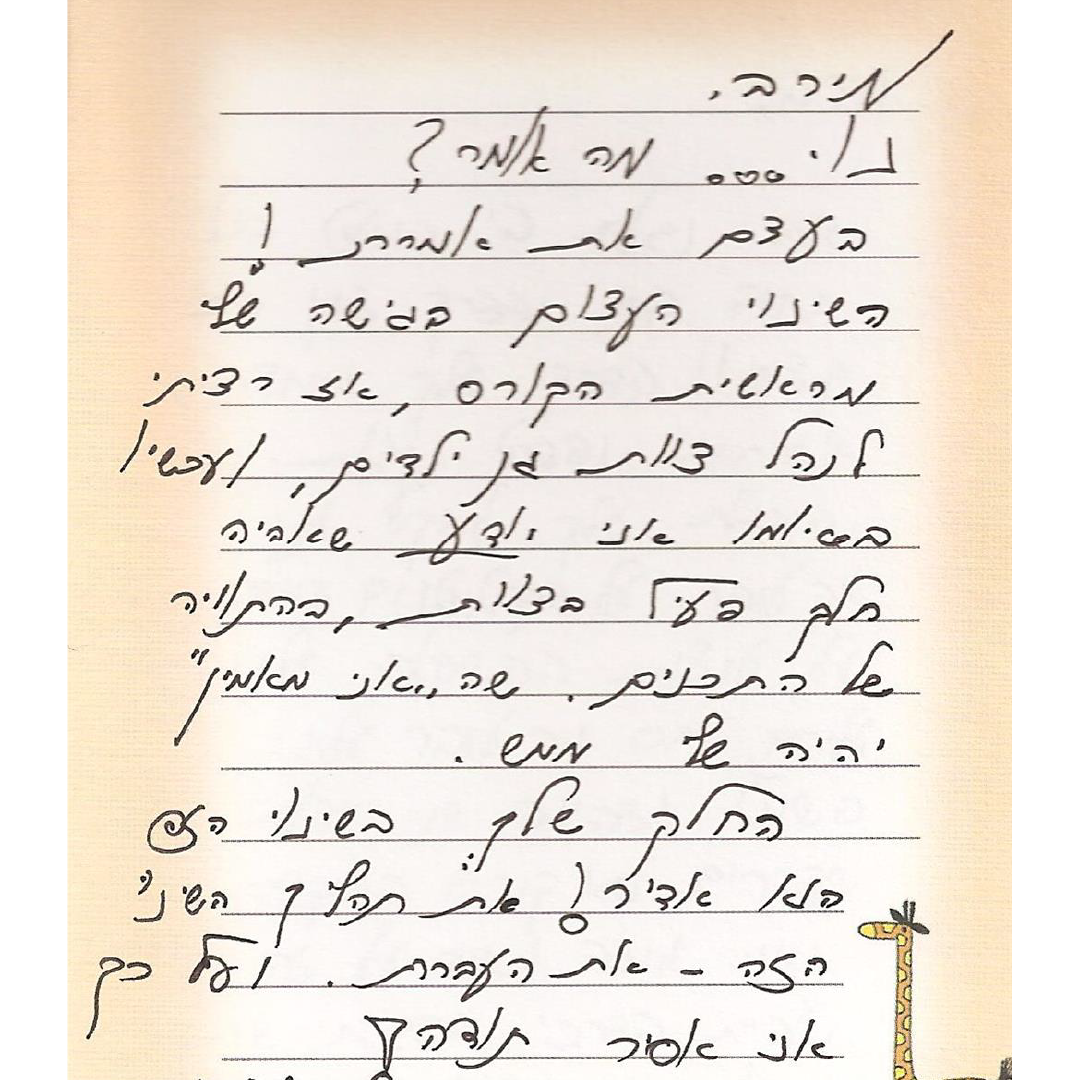 מירב,
נו... מה אומר?
בעצם את אמרת!
השינוי העצום בגישה שלי
מראשית הקורס, אז רציתי
לנהל צוות גן ילדים, ועכשיו
בסיומו אני יודע שאהיה
חלק פעיל בצוות, בהתוויה
של התכנים. שה"אני מאמין"
יהיה שלי ממש.
החלק שלך בשינוי הזה
הוא אדיר! את תהליך השינוי
הזה - את העברת. ועל כך
אני אסיר תודה